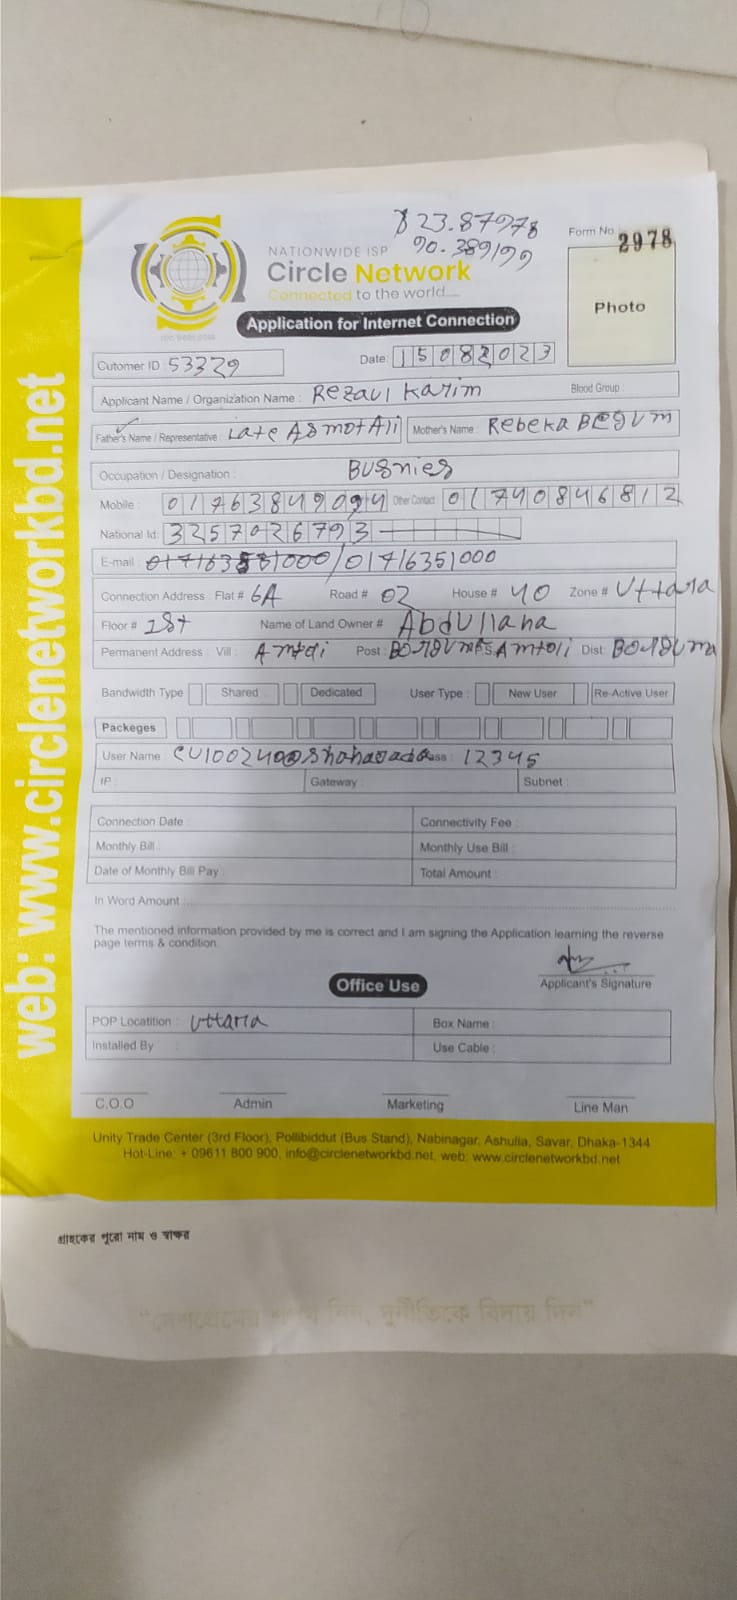 web: www.circlenetworkbd.net
23.87978
90.389199
NATIONWIDE ISP
Circle Network
Connected to the world.....
Form No. 2978
Photo
Application for Internet Connection
Cutomer ID : 53329 Date: 15082023
Applicant Name / Organization Name : Rezaul Karim Blood Group :
Father's Name / Representative : Late Asmot Ali Mother's Name : Rebeka Begum
Occupation / Designation : Busnies
Mobile : 01763849094 Other Contact 01740846812
National Id: 3257026793
E-mail : /01716351000
Connection Address : Flat # 6A Road # 02 House # 40 Zone # Uttara
Floor # 1st Name of Land Owner #
Permanent Address : Vill : Post : Dist:
Bandwidth Type Shared Dedicated User Type : New User Re-Active User
Packeges
User Name : 12345
IP : Gateway : Subnet :
Connection Date : Connectivity Fee :
Monthly Bill : Monthly Use Bill :
Date of Monthly Bill Pay : Total Amount :
In Word Amount :
The mentioned information provided by me is correct and I am signing the Application learning the reverse
page terms & condition.
Applicant's Signature
Office Use
POP Locatition : Uttara Box Name :
Installed By : Use Cable :
C.O.O Admin Marketing Line Man
Unity Trade Center (3rd Floor), Pollibiddut (Bus Stand), Nabinagar, Ashulia, Savar, Dhaka-1344
Hot-Line: + 09611 800 900, info@circlenetworkbd.net, web: www.circlenetworkbd.net
গ্রাহকের পুরো নাম ও স্বাক্ষর
"দেশপ্রেমের শপথ নিন, দুর্নীতিকে বিদায় দিন"